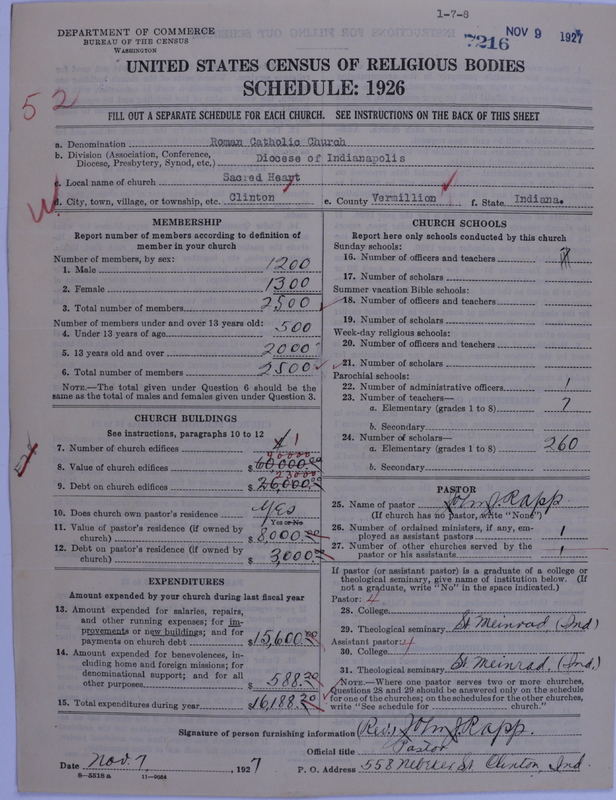 1-7-8
DEPARTMENT OF COMMERCE
BUREAU OF THE CENSUS
WASHINGTON
7216
NOV 9 1927
UNITED STATES CENSUS OF RELIGIOUS BODIES
SCHEDULE: 1926
52
FILL OUT A SEPARATE SCHEDULE FOR EACH CHURCH. SEE INSTRUCTIONS ON THE BACK OF THIS SHEET
a. Denomination Roman Catholic Church
b. Division (Association, Conference,
Diocese, Presbytery, Synod, etc.) Diocese of Indianapolis
c. Local name of church Sacred Heart
d. City, town, village, or township, etc. Clinton e. County Vermillion f. State Indiana.
MEMBERSHIP
Report number of members according to definition of
member in your church
Number of members, by sex:
1. Male 1200
2. Female 1300
3. Total number of members 2500
Number of members under and over 13 years old:
4. Under 13 years of age 500
5. 13 years old and over 2000
6. Total number of members 2500
NOTE.—The total given under Question 6 should be
same as the total of males and females given under Question 3.
CHURCH BUILDINGS
See instructions, paragraphs 10 to 12
7. Number of church edifices 1
8. Value of church edifices $ 60000.00
9. Debt on church edifices $ 26,000.00
10. Does church own pastor's residence Yes
Yes or No
11. Value of pastor's residence (if owned by
church) $ 8,000.00
12. Debt on pastor's residence (if owned by
church) $ 3,000.00
EXPENDITURES
Amount expended by your church during last fiscal year
13. Amount expended for salaries, repairs,
and other running expenses; for im-
provements or new buildings; and for
payments on church debt $ 15,600.00
14. Amount expended for benevolences, in-
cluding home and foreign missions; for
denominational support; and for all
other purposes $ 588.20
15. Total expenditures during year $ 16,188.20
CHURCH SCHOOLS
Report here only schools conducted by this church
Sunday schools:
16. Number of officers and teachers
17. Number of scholars
Summer vacation Bible schools:
18. Number of officers and teachers
19. Number of scholars
Week-day religious schools:
20. Number of officers and teachers
21. Number of scholars
Parochial schools:
22. Number of administrative officers 1
23. Number of teachers—
a. Elementary (grades 1 to 8) 7
b. Secondary
24. Number of scholars—
a. Elementary (grades 1 to 8) 260
b. Secondary
PASTOR
25. Name of pastor John J. Rapp
(If church has no pastor, write "None")
26. Number of ordained ministers, if any, em-
ployed as assistant pastors 1
27. Number of other churches served by the
pastor or his assistants 1
If pastor (or assistant pastor) is a graduate of a college or
theological seminary, give name of institution below. (If
not a graduate, write "No" in the space indicated.)
Pastor: 4
28. College
29. Theological seminary St Meinrad (Ind)
Assistant pastor: 4
30. College
31. Theological seminary St. Meinrad, (Ind.)
NOTE.—Where one pastor serves two or more churches,
Questions 28 and 29 should be answered only on the schedule
for one of the churches; on the schedules for the other churches,
write "See schedule for church."
Signature of person furnishing information (Rev.) John J. Rapp.
Official title Pastor
Date Nov. 7, 1927 P. O. Address 558 Nebeker St Clinton, Ind.
8-5518a 11-9084